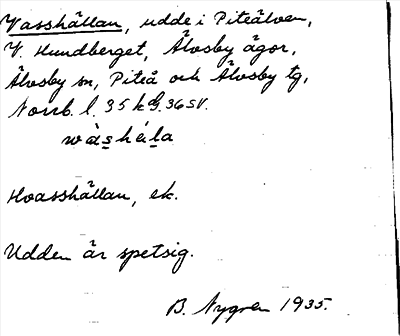 Vasshällan, udde i Piteälven,
V. Hundberget, Älvsby ägor,
Älvsby sn, Piteå och Älvsby tg,
Norrb. l. 35 k G. 36 SV.
wàshéla
Hvasshällan, ek.
Udden är spetsig.
B. Nygren 1935.